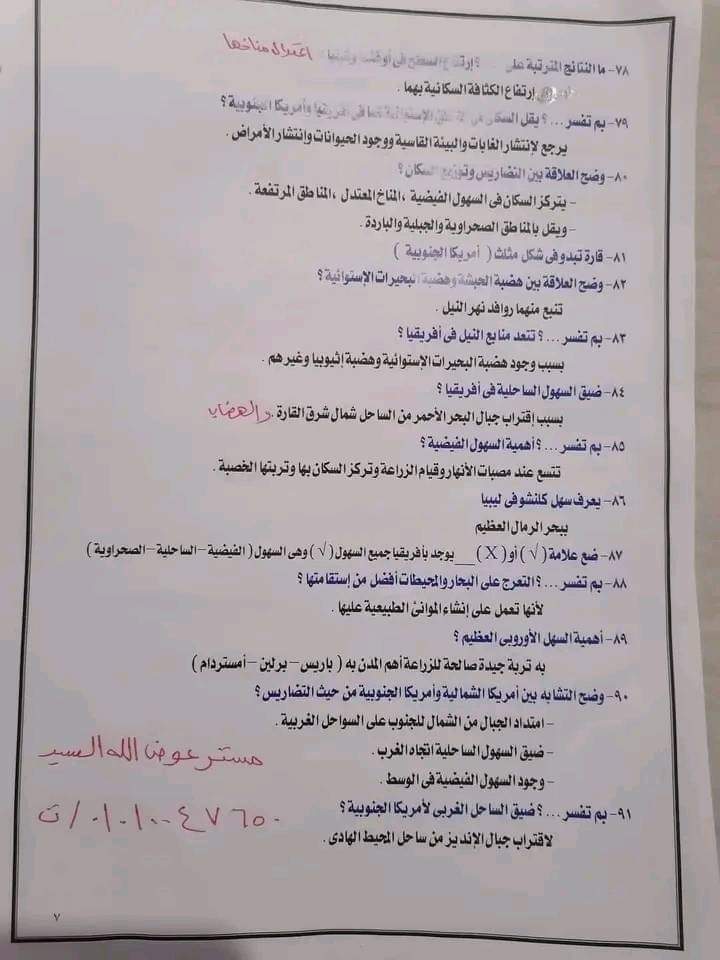 ٧٨- ما النتائج المترتبة على ؟ إرتفاع السطح فى اعتدال مناخها
إرتفاع الكثافة السكانية بهما .
٧٩- بم تفسر ... ؟ يقل السكان الإستوائية أفريقيا وأمريكا الجنوبية ؟
يرجع لإنتشار الغابات والبيئة القاسية ووجود الحيوانات وإنتشار الأمراض .
٨٠- وضح العلاقة بين التضاريس وتوزيع السكان ؟
- يتركز السكان فى السهول الفيضية ، المناخ المعتدل ، المناطق المرتفعة .
- ويقل بالمناطق الصحراوية والجبلية والباردة .
٨١- قارة تبدو فى شكل مثلث ( أمريكا الجنوبية )
٨٢- وضح العلاقة بين هضبة الحبشة وهضبة البحيرات الإستوائية ؟
تنبع منهما روافد نهر النيل .
٨٣- بم تفسر ... ؟ تتعدد منابع النيل فى أفريقيا ؟
بسبب وجود هضبة البحيرات الإستوائية وهضبة إثيوبيا وغيرهم .
٨٤- ضيق السهول الساحلية فى أفريقيا ؟
بسبب إقتراب جبال البحر الأحمر من الساحل شمال شرق القارة . والهضاب
٨٥- بم تفسر ... ؟ أهمية السهول الفيضية ؟
تتسع عند مصبات الأنهار وقيام الزراعة وتركز السكان بها وتربتها الخصبة .
٨٦- يعرف سهل كلنشو فى ليبيا
ببحر الرمال العظيم
٨٧- ضع علامة ( √ ) أو ( X ) __ يوجد بأفريقيا جميع السهول ( √ ) وهى السهول ( الفيضية - الساحلية - الصحراوية )
٨٨- بم تفسر ... ؟ التعرج على البحار والمحيطات أفضل من إستقامتها ؟
لأنها تعمل على إنشاء الموانئ الطبيعية عليها .
٨٩- أهمية السهل الأوروبى العظيم ؟
به تربة جيدة صالحة للزراعة أهم المدن به ( باريس - برلين - أمستردام )
٩٠- وضح التشابه بين أمريكا الشمالية وأمريكا الجنوبية من حيث التضاريس ؟
- امتداد الجبال من الشمال للجنوب على السواحل الغربية .
- ضيق السهول الساحلية اتجاه الغرب .
- وجود السهول الفيضية فى الوسط .
مستر عوض الله السيد
٩١- بم تفسر ... ؟ ضيق الساحل الغربى لأمريكا الجنوبية ؟
لاقتراب جبال الإنديز من ساحل المحيط الهادى .
ت / ٠١٠١٠٠٤٧٦٥٠
٧